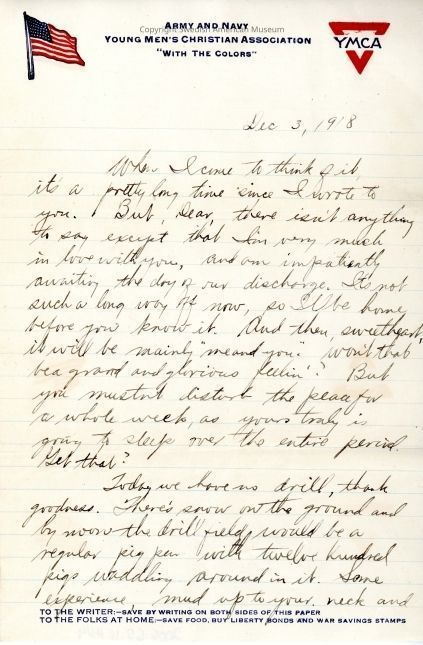 Copyright Swedish American Museum
ARMY AND NAVY
YOUNG MEN'S CHRISTIAN ASSOCIATION
"WITH THE COLORS"
YMCA
Dec 3, 1918
When I come to think of it,
it's a pretty long time since I wrote to
you. But, Dear, there isn't anything
to say except that I'm very much
in love with you, and am impatiently
awaiting the day of our discharge. It's not
such a long way off now, so I'll be home
before you know it. And then, sweetheart,
it will be mainly "me and you". Won't that
be a grand and glorious feelin'? But
you mustn't disturb the peace for
a whole week, as yours truly is
going to sleep over the entire period.
Get that?
Today we have no drill, thank
goodness. There's snow on the ground and
by noon the drill field would be a
regular pig pen with twelve hundred
pigs waddling around in it. Some
experience, mud up to your neck and
TO THE WRITER:—SAVE BY WRITING ON BOTH SIDES OF THIS PAPER
TO THE FOLKS AT HOME:—SAVE FOOD, BUY LIBERTY BONDS AND WAR SAVINGS STAMPS